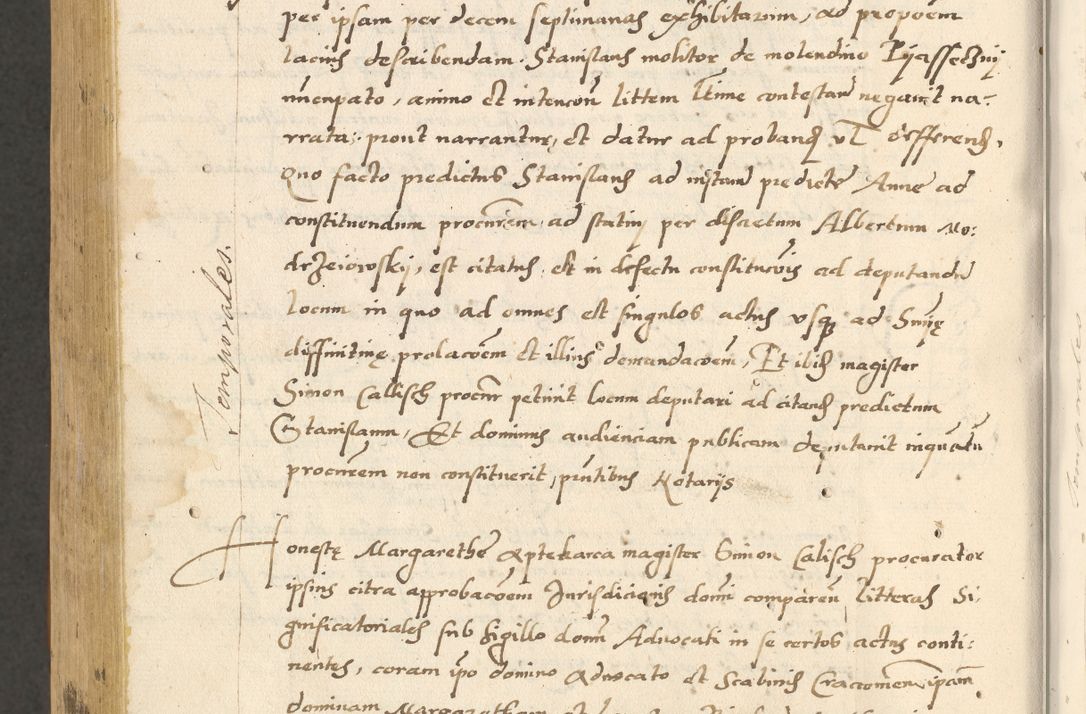 per ipsam per decem septimanas exhibitarum, ad propoem
lacius describendam. Stanislaus molitor de molendino Pijasseczny
nuncpato, animo et intencon littem ltime contestan negavit na-
rrata prout narrantur, et datur ad proband vl differend.
Quo facto predictus Stanislaus ad instan predicte Anne ad
constituendum procurem ad statim per discretum Albertum Mo:
drzeiowskij, est citatus, et in defectu constitucois ad deputandu
locum in quo ad omnes et singulos actus vsq ad Snię
diffinitiuę prolacoem et illius demandacoem, Et ibid magister
Simon Callisch procur petiuit locum deputari ad citand predictum
Stanislaum, Et dominus audienciam publicam deputauit inquatu
procurem non constituerit, pntibus Notarijs
Temporales.
Honestę Margarethe Aptekarca magister Simon Calisch procurator
ipsius citra approbacoem Jurisdicionis domi comparen litteras Si-
gnificatoriales sub sigillo domi Aduocati in se certos actus conti:
nentes, coram ipo domino Aduocato et Scabinis Cracouien ipam
dominam Margaretham et